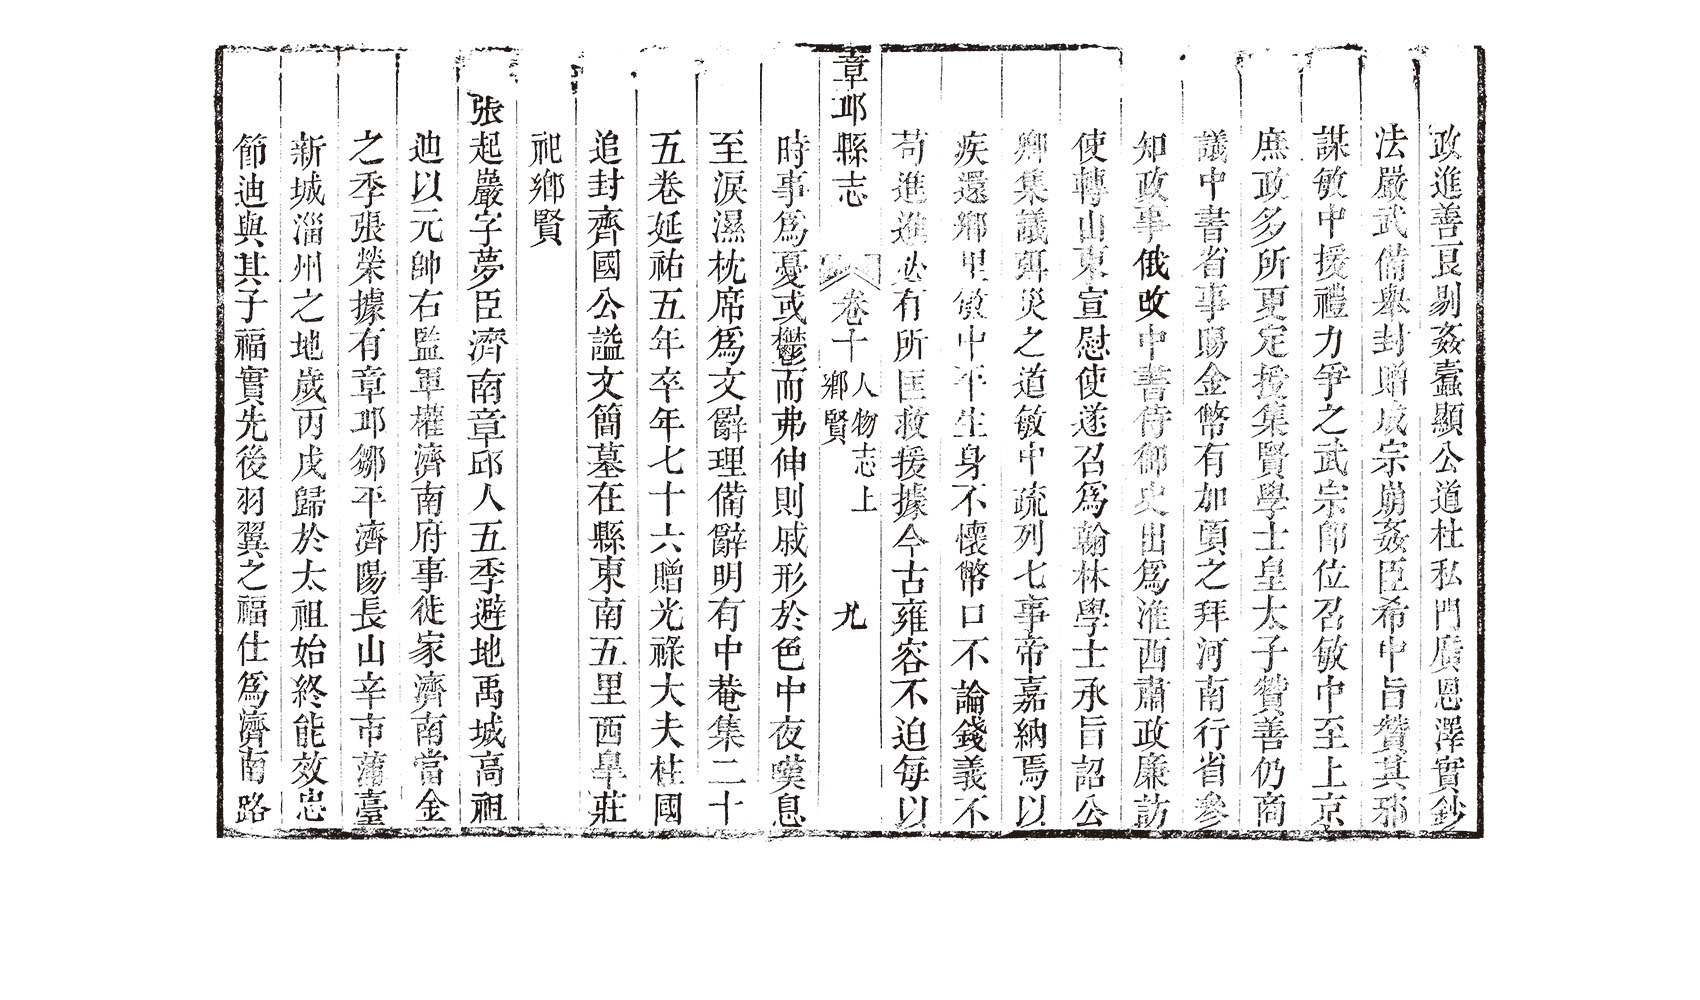 政進善良剔姦蠹顯公道杜私門廣恩澤實鈔
法嚴武備舉封贈成宗崩姦臣希中旨贊其邪
謀敏中援禮力爭之武宗卽位召敏中至上京
庶政多所更定授集賢學士皇太子贊善仍商
議中書省事賜金幣有加頃之拜河南行省參
知政事俄改中書侍御史出爲淮西肅政廉訪
使轉山東宣慰使遂召爲翰林學士承旨詔公
卿集議弭災之道敏中疏列七事帝嘉納焉以
疾還鄉里敏中平生身不懷幣口不論錢義不
苟進進必有所匡救援據今古雍容不迫每以
章邱縣志　卷十 人物志上 鄉賢　尤
時事爲憂或鬱而弗伸則戚形於色中夜嘆息
至淚濕枕席爲文辭理備辭明有中菴集二十
五卷延祐五年卒年七十六贈光祿大夫柱國
追封齊國公謚文簡墓在縣東南五里西皐莊
祀鄉賢
張起巖字夢臣濟南章邱人五季避地禹城高祖
迪以元帥右監軍權濟南府事徙家濟南當金
之季張榮據有章邱鄒平濟陽長山辛市蒲臺
新城淄州之地歲丙戌歸於太祖始終能效忠
節迪與其子福實先後羽翼之福仕爲濟南路